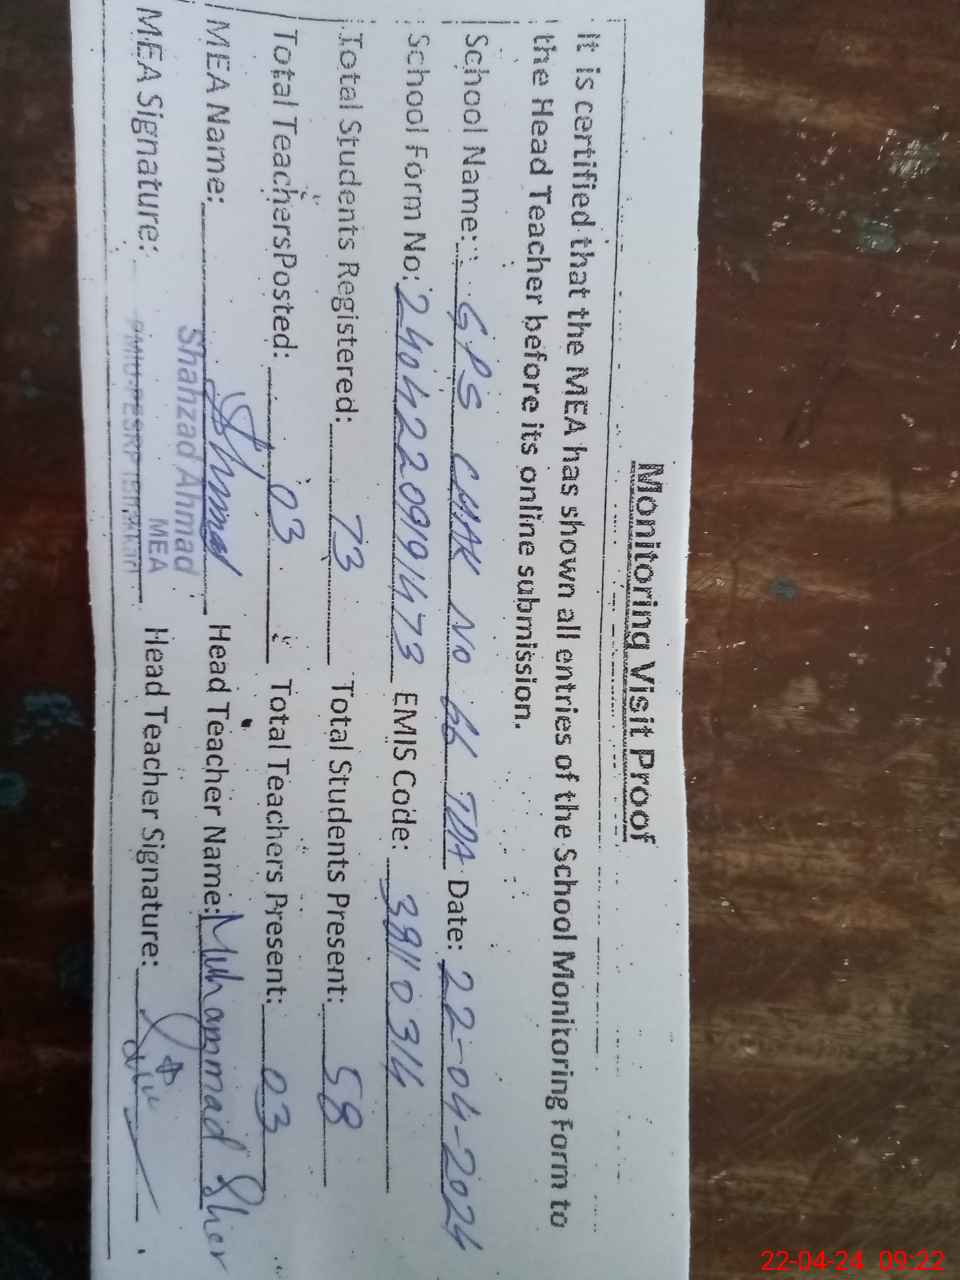 Monitoring Visit Proof
It is certified that the MEA has shown all entries of the School Monitoring Form to
the Head Teacher before its online submission.
School Name: GPS CHAK No 66 TDA Date: 22-04-2024
School Form No: 2404220919473 EMIS Code: 38110314
Total Students Registered: 73 Total Students Present: 58
Total Teachers Posted: 03 Total Teachers Present: 03
MEA Name: Head Teacher Name: Muhammad Sher
Shahzad Ahmad
MEA
MEA Signature: Head Teacher Signature:
22-04-24 09:22